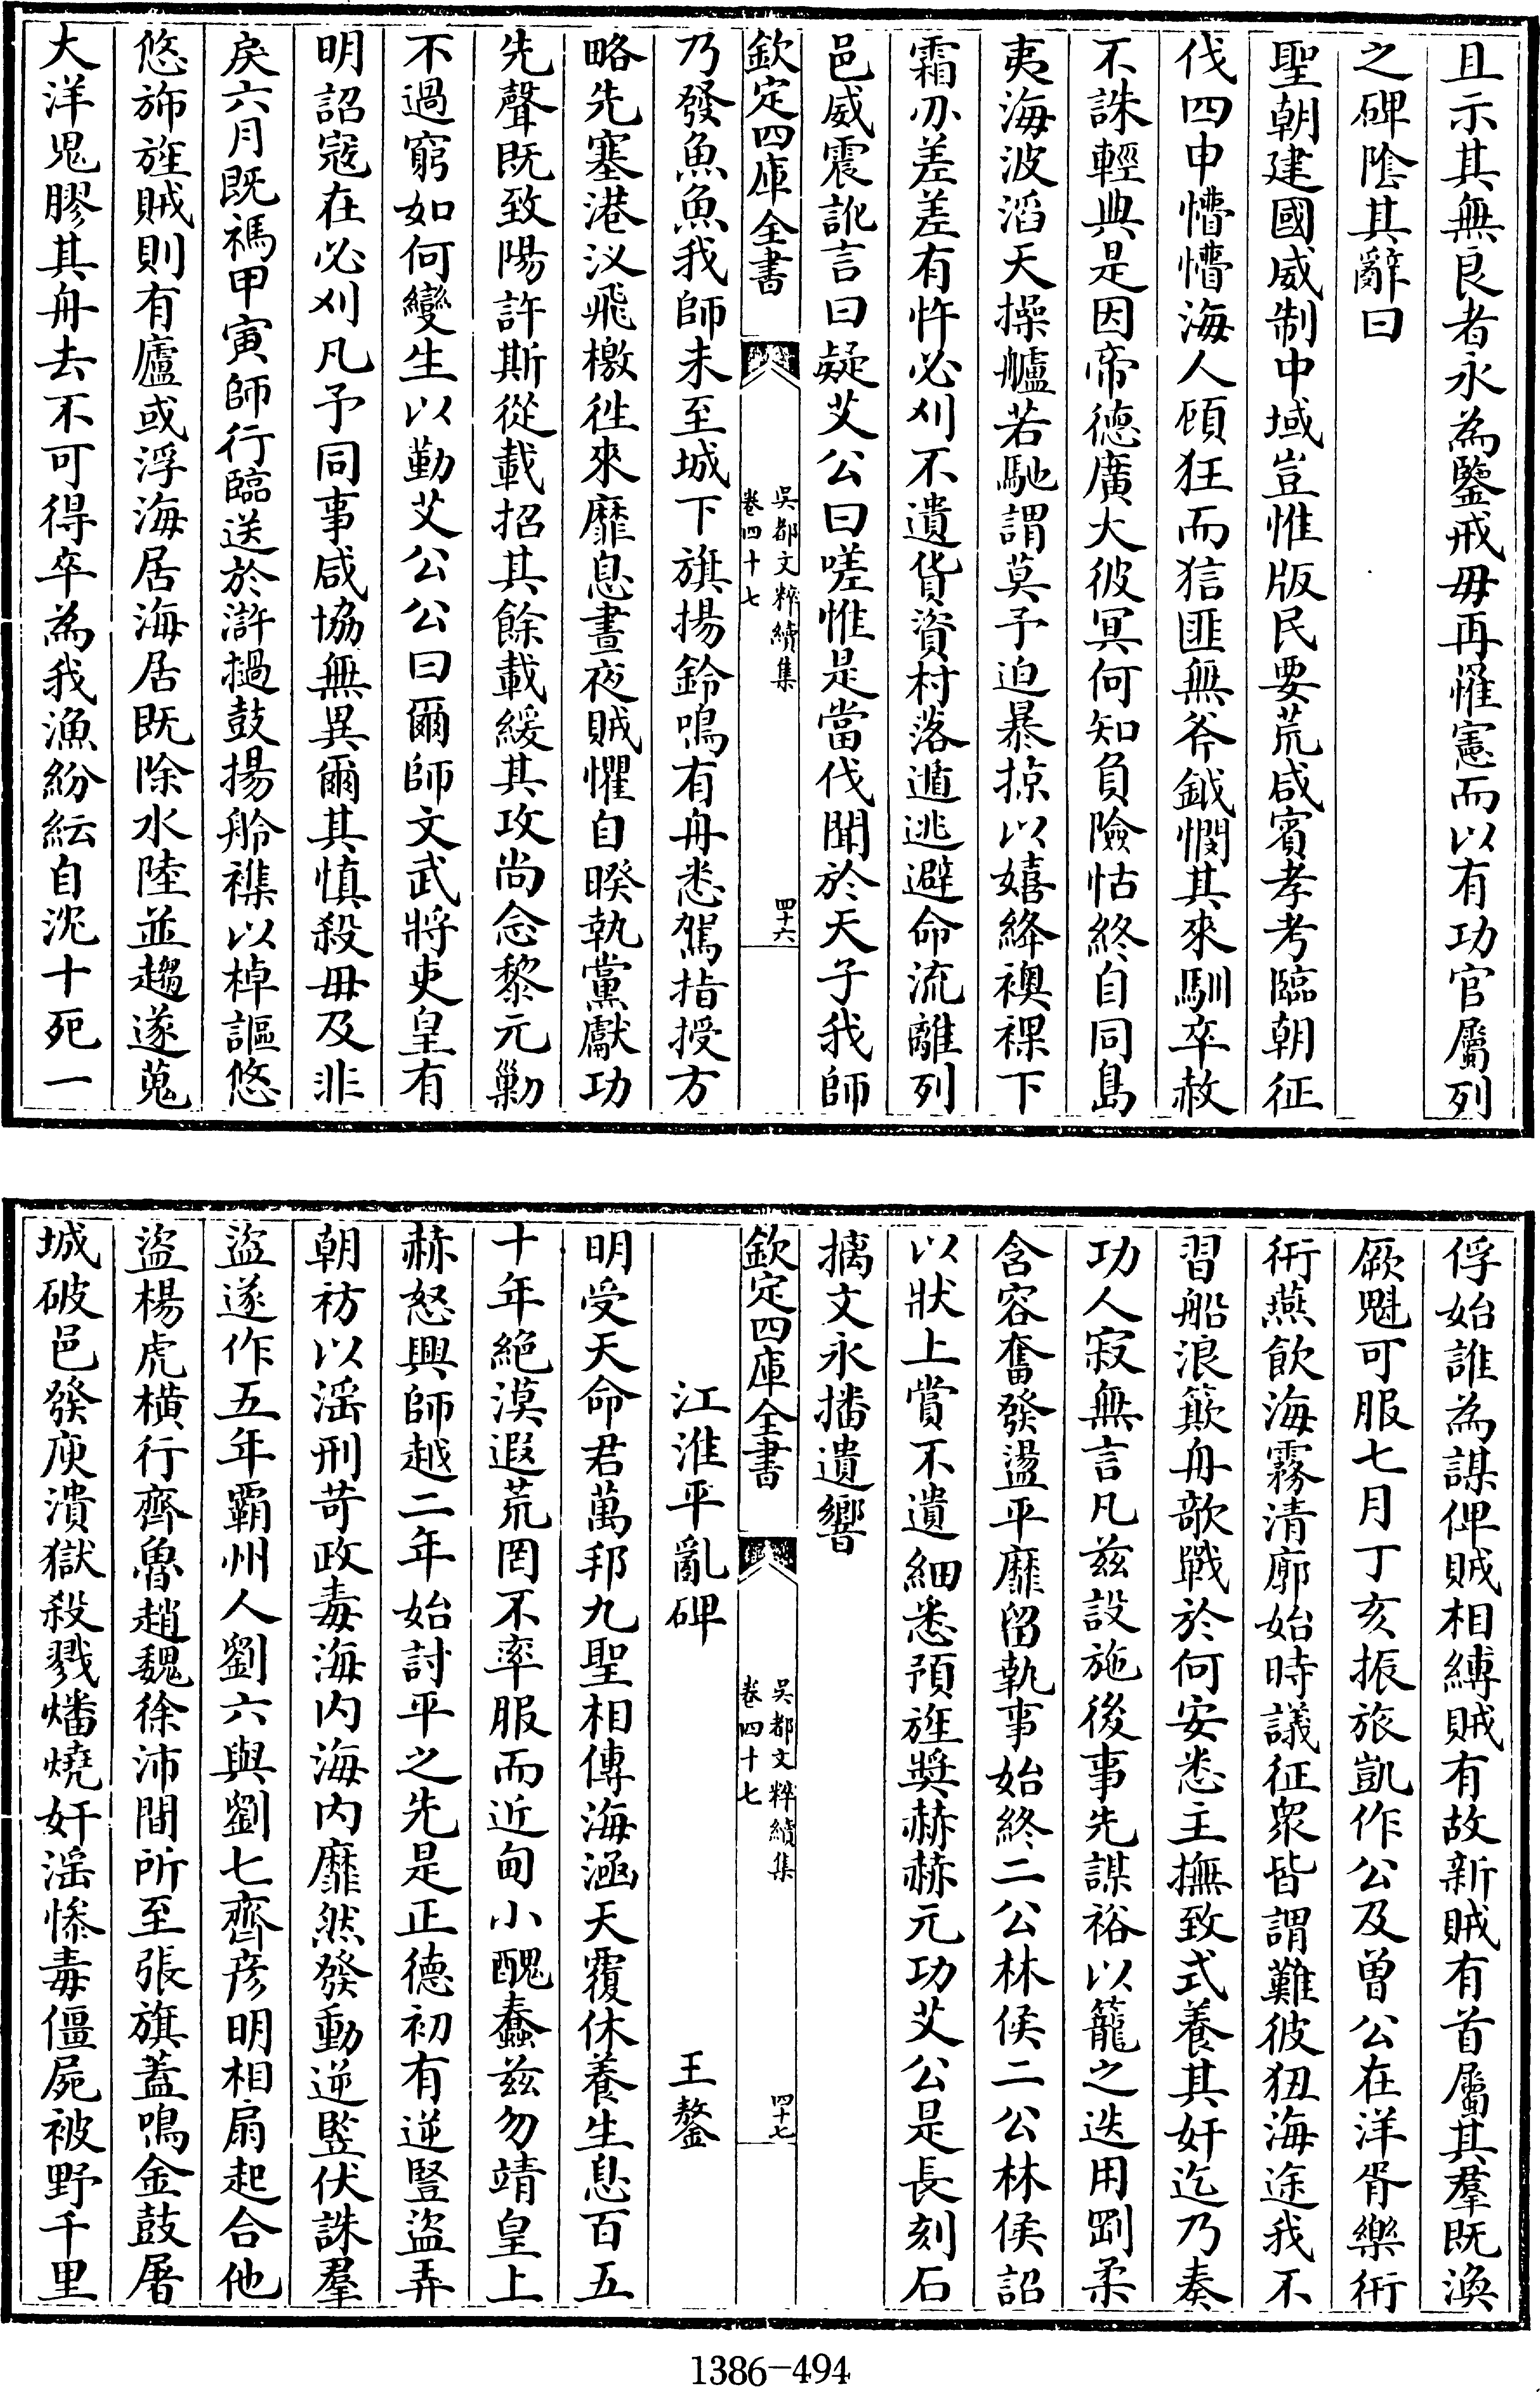 且示其無良者永為鑒戒毋再罹憲而以有功官屬列
之碑陰其辭曰
聖朝建國威制中域豈惟版民要荒咸賓孝考臨朝征
伐四申懵懵海人頑狂而狺匪無斧鉞憫其來馴卒赦
不誅輕典是因帝德廣大彼冥何知負險怙終自同島
夷海波滔天操艫若馳謂莫予迫暴掠以嬉絳襖裸下
霜刅差差有忤必刈不遺貨資村落遁逃避命流離列
邑威震訛言曰疑艾公曰嗟惟是當伐聞於天子我師
欽定四庫全書
吳都文粹續集
卷四十七
四十六
乃發魚魚我師未至城下旗揚鈴鳴有舟悉駕指授方
略先塞港汊飛檄徃來靡息晝夜賊懼自睽執黨獻功
先聲既致陽許斯從載招其餘載緩其攻尚念黎元勦
不過窮如何變生以勤艾公公曰爾師文武將吏皇有
明詔寇在必刈凡予同事咸協無異爾其慎殺毋及非
戾六月既禡甲寅師行臨送於滸撾鼓揚舲襍以棹謳悠
悠斾旌賊則有廬或浮海居海居既除水陸並趨遂蒐
大洋鬼膠其舟去不可得卒為我漁紛紜自沈十死一
俘始誰為謀俾賊相縛賊有故新賊有首屬其羣既渙
厥魁可服七月丁亥振旅凱作公及曽公在洋胥樂衎
衎燕飲海霧清廓始時議征衆皆謂難彼狃海途我不
習船浪簸舟欹戰於何安悉主撫致式養其奸迄乃奏
功人寂無言凡兹設施後事先謀裕以籠之迭用剛柔
含容奮發盪平靡留執事始終二公林侯二公林侯詔
以狀上賞不遺細悉預旌奬赫赫元功艾公是長刻石
摛文永播遺響
欽定四庫全書
吳都文粹續集
卷四十七
四十七
江淮平亂碑
王鏊
明受天命君萬邦九聖相傳海涵天覆休養生息百五
十年絶漠遐荒罔不率服而近甸小醜蠢兹勿靖皇上
赫怒興師越二年始討平之先是正德初有逆豎盜弄
朝祊以滛刑苛政毒海内海内靡然發動逆豎伏誅羣
盜遂作五年霸州人劉六與劉七齊彦明相扇起合他
盜楊虎橫行齊魯趙魏徐沛間所至張旗蓋鳴金鼓屠
城破邑發庾潰獄殺戮燔燒奸滛慘毒僵屍被野千里
1386-494